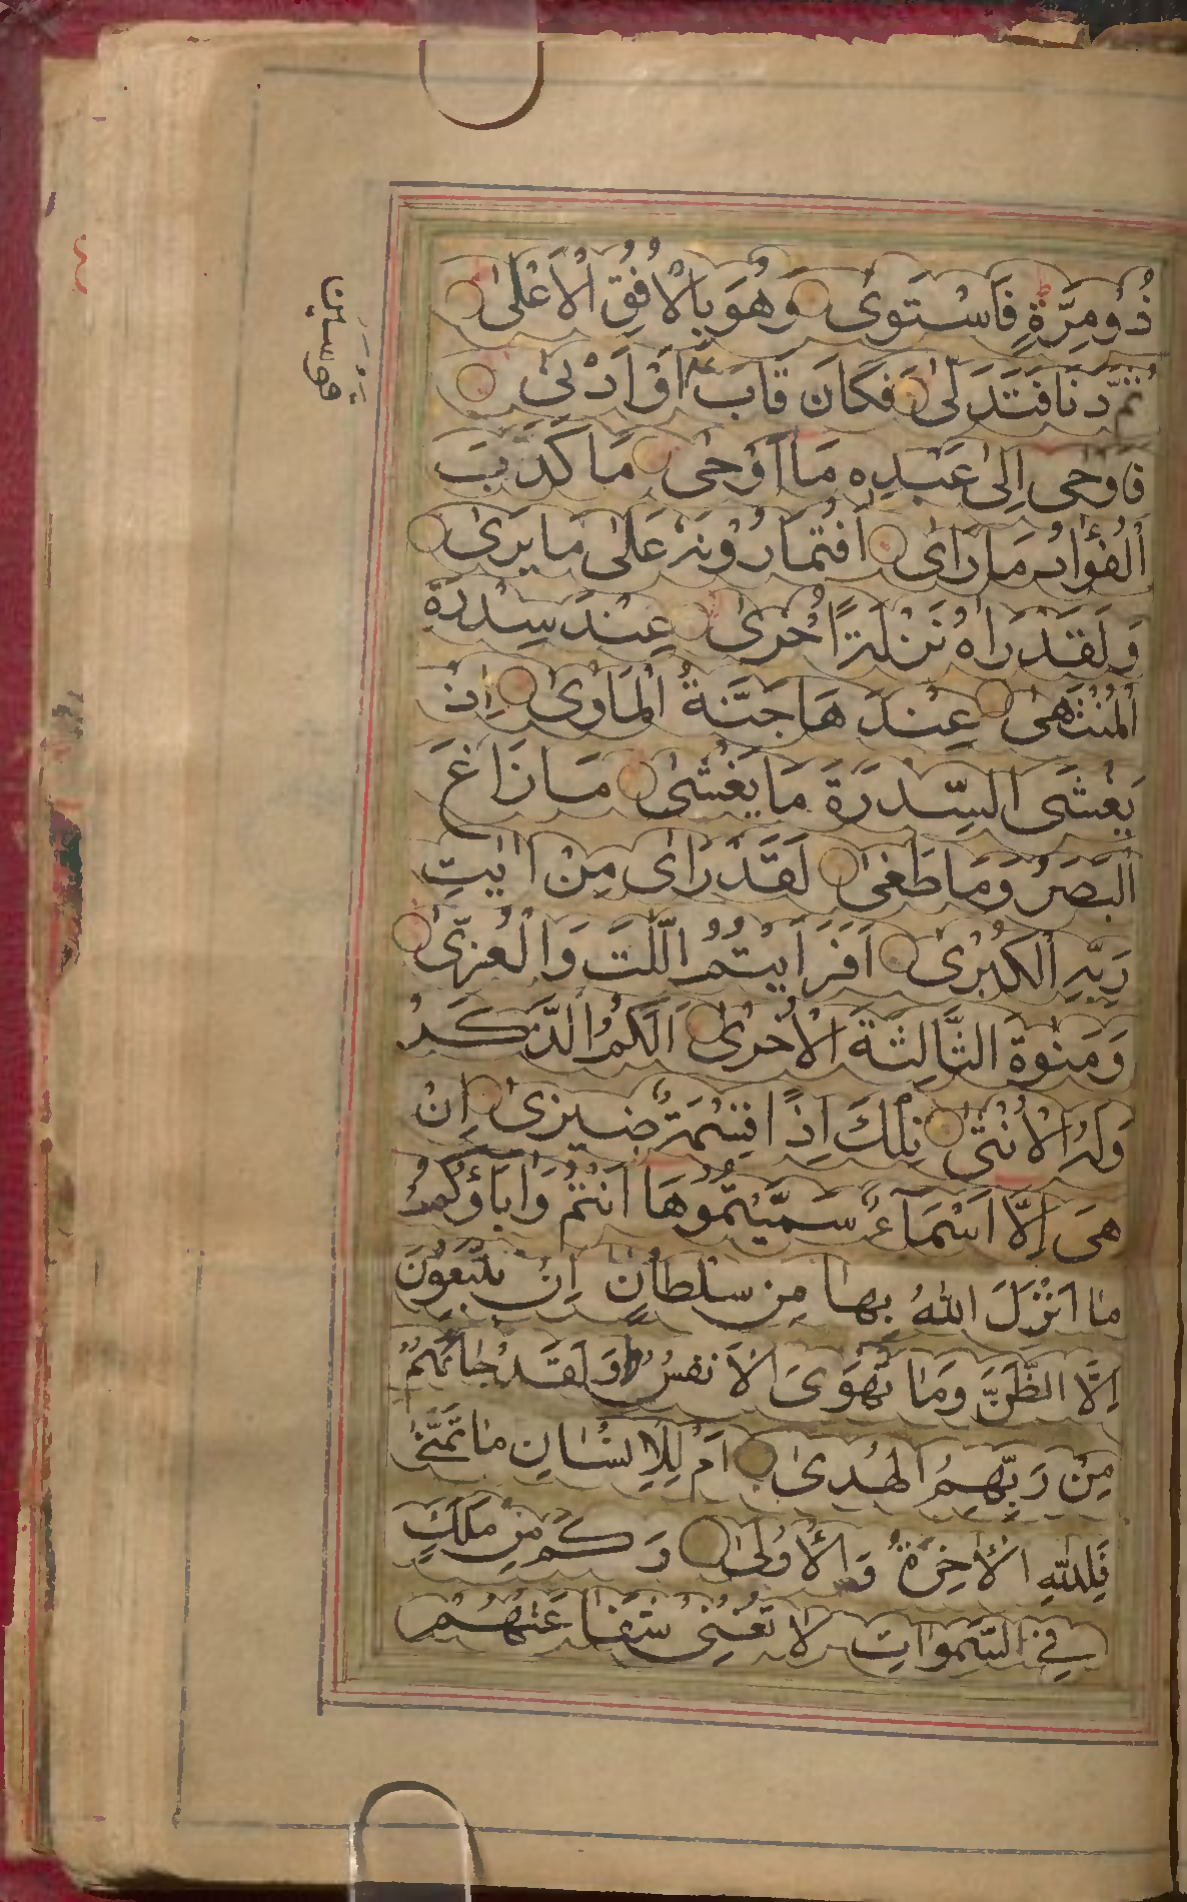 ذُوْمِرَّةٍ فَاسْتَوىٰ وَهُوَ بِالْاُفُقِ الْاَعْلىٰ
ثُمَّ دَنَا فَتَدَلّىٰ فَكَانَ قَابَ اَوْ اَدْنىٰ
قوسين
فَاَوْحىٰ اِلىٰ عَبْدِهٖ مَا اَوْحىٰ مَا كَذَبَ
الْفُؤَادُ مَا رَاىٰ اَفَتُمَارُوْنَهٗ عَلىٰ مَا يَرىٰ
وَلَقَدْ رَاٰهُ نَزْلَةً اُخْرىٰ عِنْدَ سِدْرَةِ
الْمُنْتَهىٰ عِنْدَهَا جَنَّةُ الْمَاْوىٰ اِذْ
يَغْشَى السِّدْرَةَ مَا يَغْشىٰ مَا زَاغَ
الْبَصَرُ وَمَا طَغىٰ لَقَدْ رَاىٰ مِنْ اٰيٰتِ
رَبِّهِ الْكُبْرىٰ اَفَرَاَيْتُمُ اللّٰتَ وَالْعُزّىٰ
وَمَنٰوةَ الثَّالِثَةَ الْاُخْرىٰ اَلَكُمُ الذَّكَرُ
وَلَهُ الْاُنْثىٰ تِلْكَ اِذًا قِسْمَةٌ ضِيْزىٰ اِنْ
هِىَ اِلَّا اَسْمَآءٌ سَمَّيْتُمُوْهَا اَنْتُمْ وَاٰبَاؤُكُمْ
مَا اَنْزَلَ اللّٰهُ بِهَا مِنْ سُلْطَانٍ اِنْ يَتَّبِعُوْنَ
اِلَّا الظَّنَّ وَمَا تَهْوَى الْاَنْفُسُ وَلَقَدْ جَائَهُمْ
مِنْ رَبِّهِمُ الْهُدىٰ اَمْ لِلْاِنْسَانِ مَا تَمَنّىٰ
فَلِلّٰهِ الْاٰخِرَةُ وَالْاُوْلىٰ وَكَمْ مِنْ مَلَكٍ
فِى السَّمٰوَاتِ لَا تُغْنِىْ شَفَاعَتُهُمْ